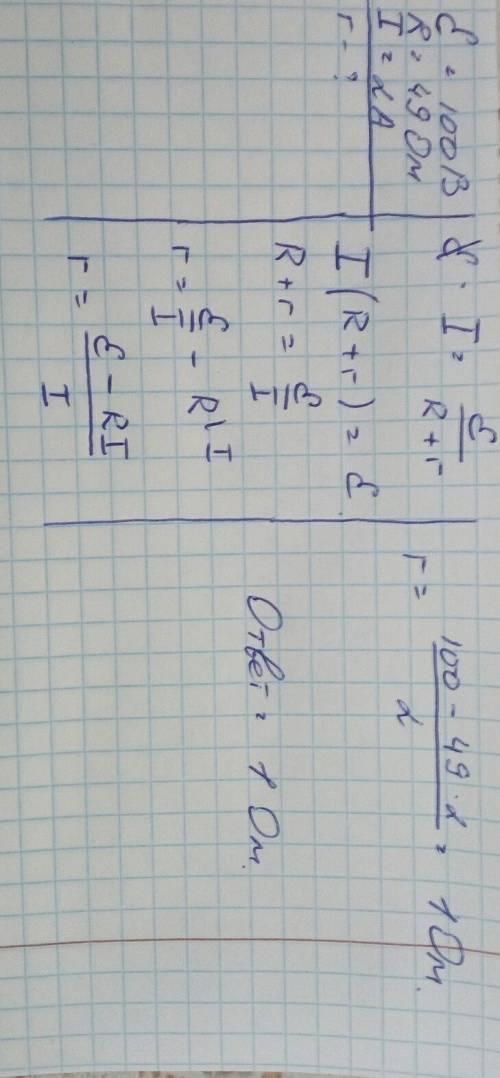 ℰ = 100 В
R = 49 Ом
I = 2 А
r - ?
ℰ · I = ℰ/(R+r)
I (R+r) = ℰ
R+r = ℰ/I
r = ℰ/I - R\I
r = (ℰ - RI)/I
r = (100 - 49·2)/2 = 1 Ом.
Ответ = 1 Ом.